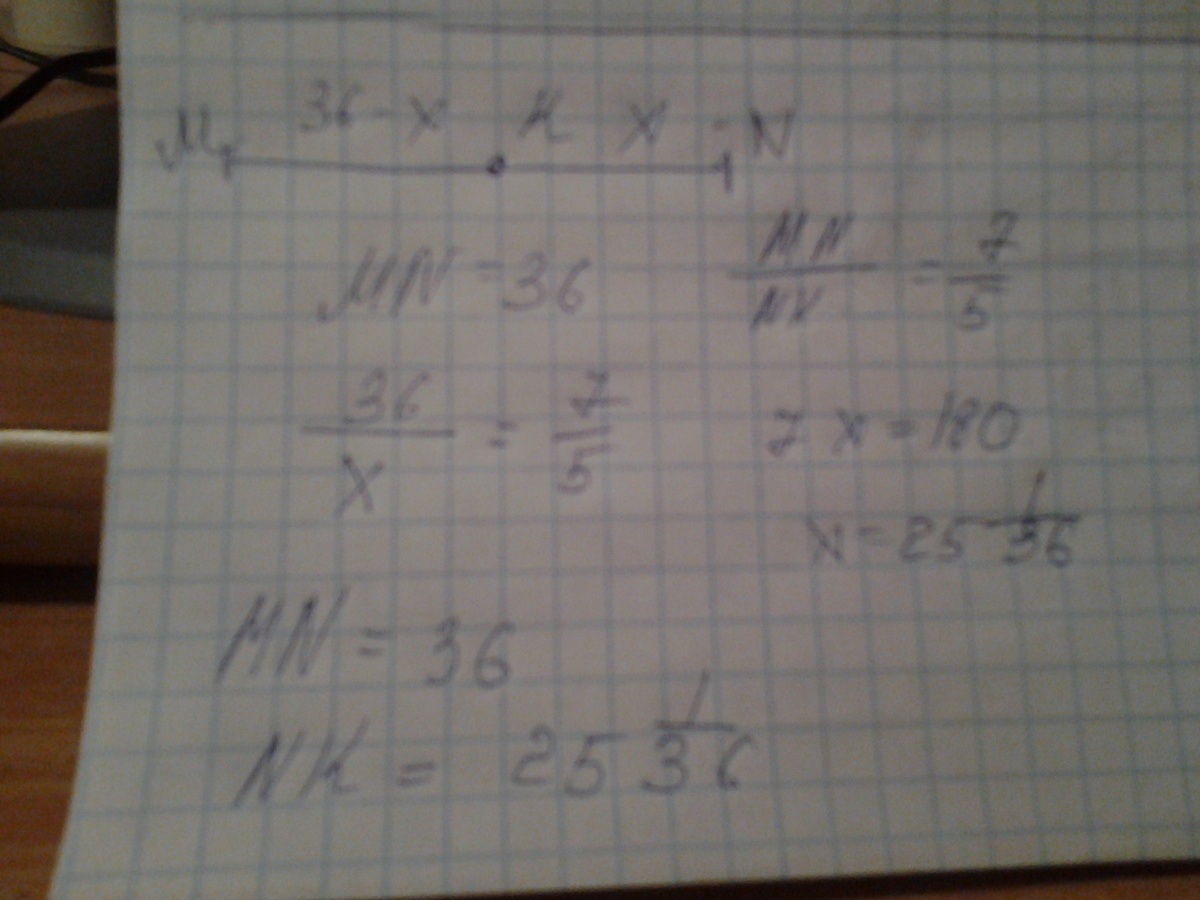 M 36-x K x N
MN=36 MN/NK = 7/5
36/x = 7/5 7x=180
x=25 1/36
MN = 36
NK = 25 1/36